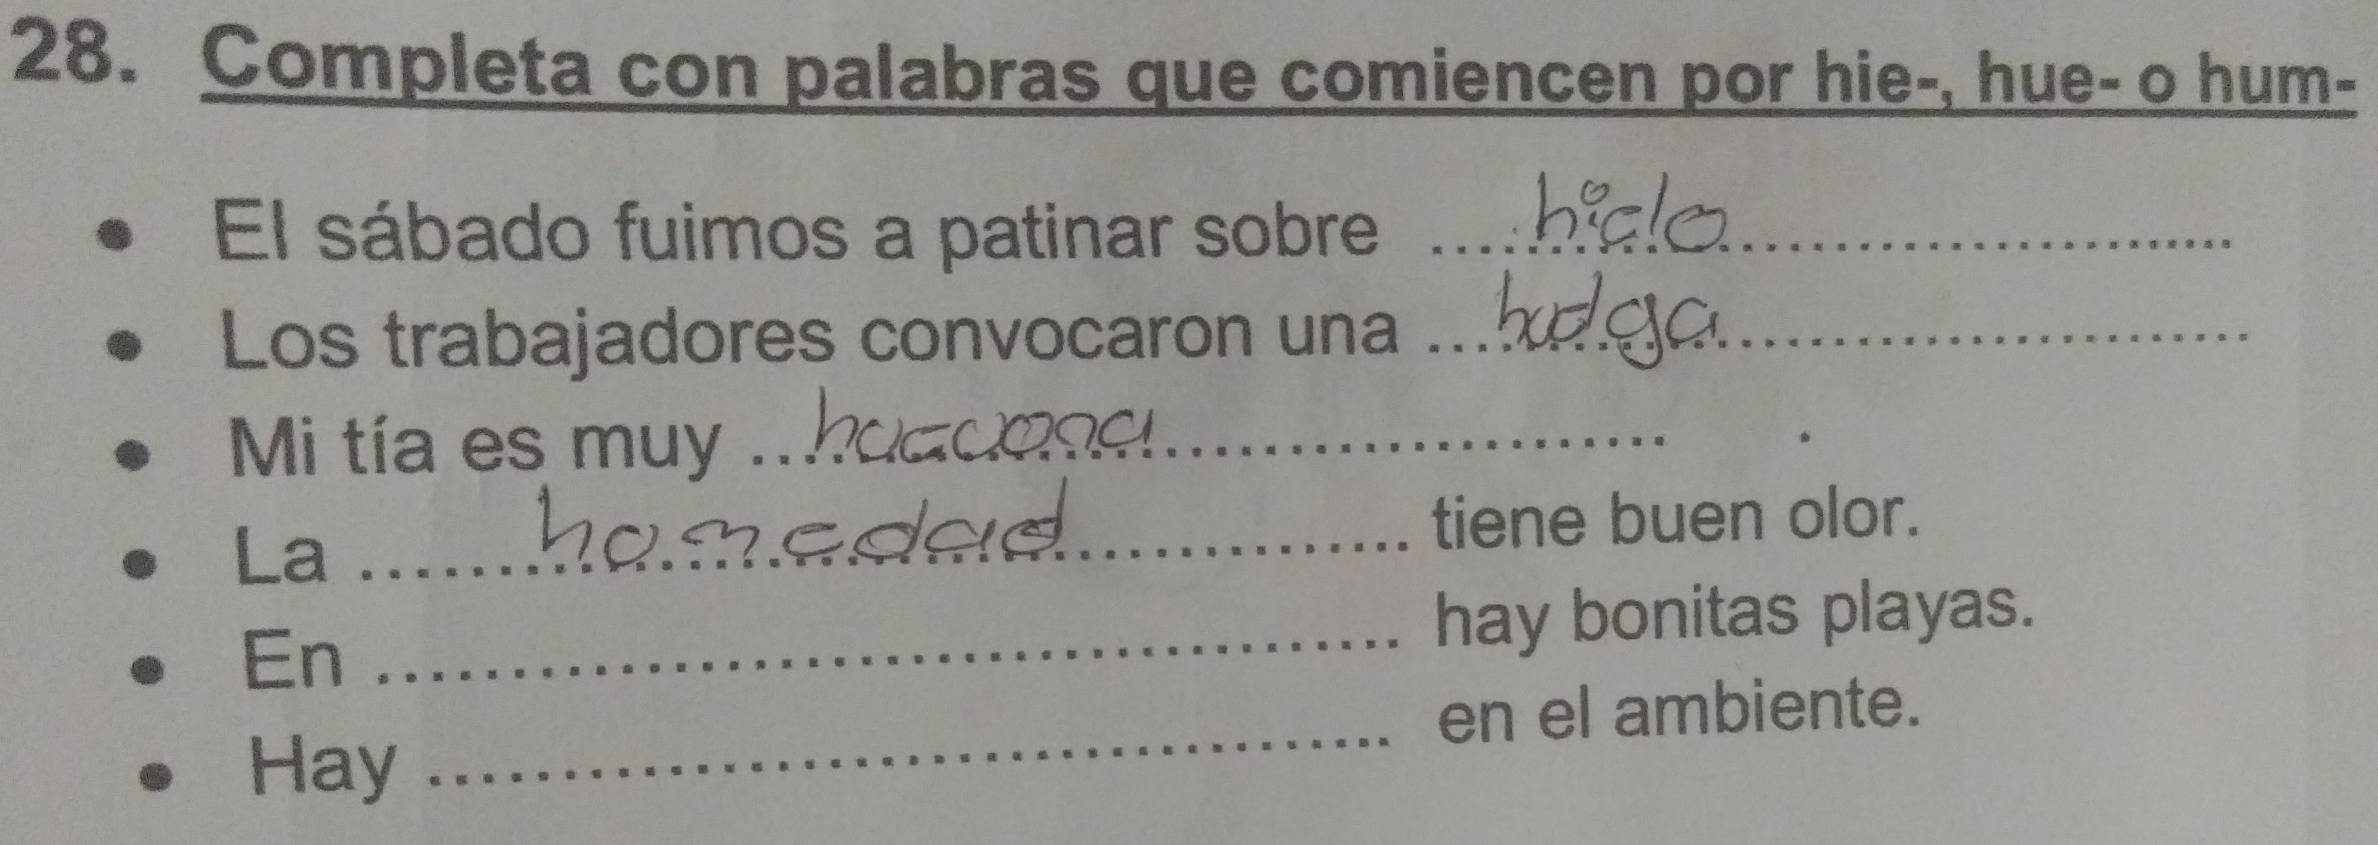 28. Completa con palabras que comiencen por hie-, hue- o hum-
• El sábado fuimos a patinar sobre ....hielo....................
• Los trabajadores convocaron una ....huelga....................
• Mi tía es muy .................... .
• La ........homedad............ tiene buen olor.
• En ........................................ hay bonitas playas.
• Hay ...................................... en el ambiente.